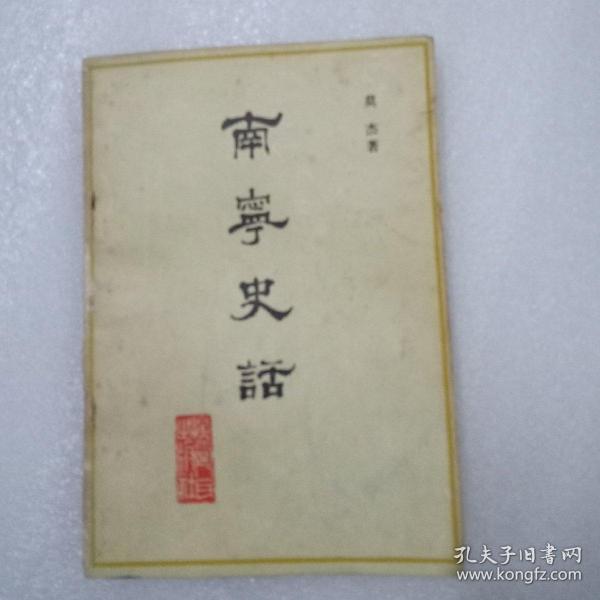 莫杰著
南寧史話
孔夫子旧書网
www.kongfz.com